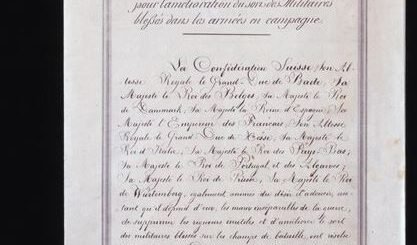 pour l'amélioration du sort des Militaires
blessés dans les armées en campagne.
La Confédération Suisse, Son Al-
tesse Royale le Grand-Duc de Bade, Sa
Majesté le Roi des Belges, Sa Majesté le Roi
de Danemark, Sa Majesté la Reine d'Espagne, Sa
Majesté l'Empereur des Français, Son Altesse
Royale le Grand Duc de Hesse, Sa Majesté le
Roi d'Italie, Sa Majesté le Roi des Pays-Bas,
Sa Majesté le Roi de Portugal et des Algarves,
Sa Majesté le Roi de Prusse, Sa Majesté le Roi
de Würtemberg, également animés du désir d'adoucir, au-
tant qu'il dépend d'eux, les maux inséparables de la guerre,
de supprimer les rigueurs inutiles et d'améliorer le sort
des militaires blessés sur les champs de bataille, ont résolu